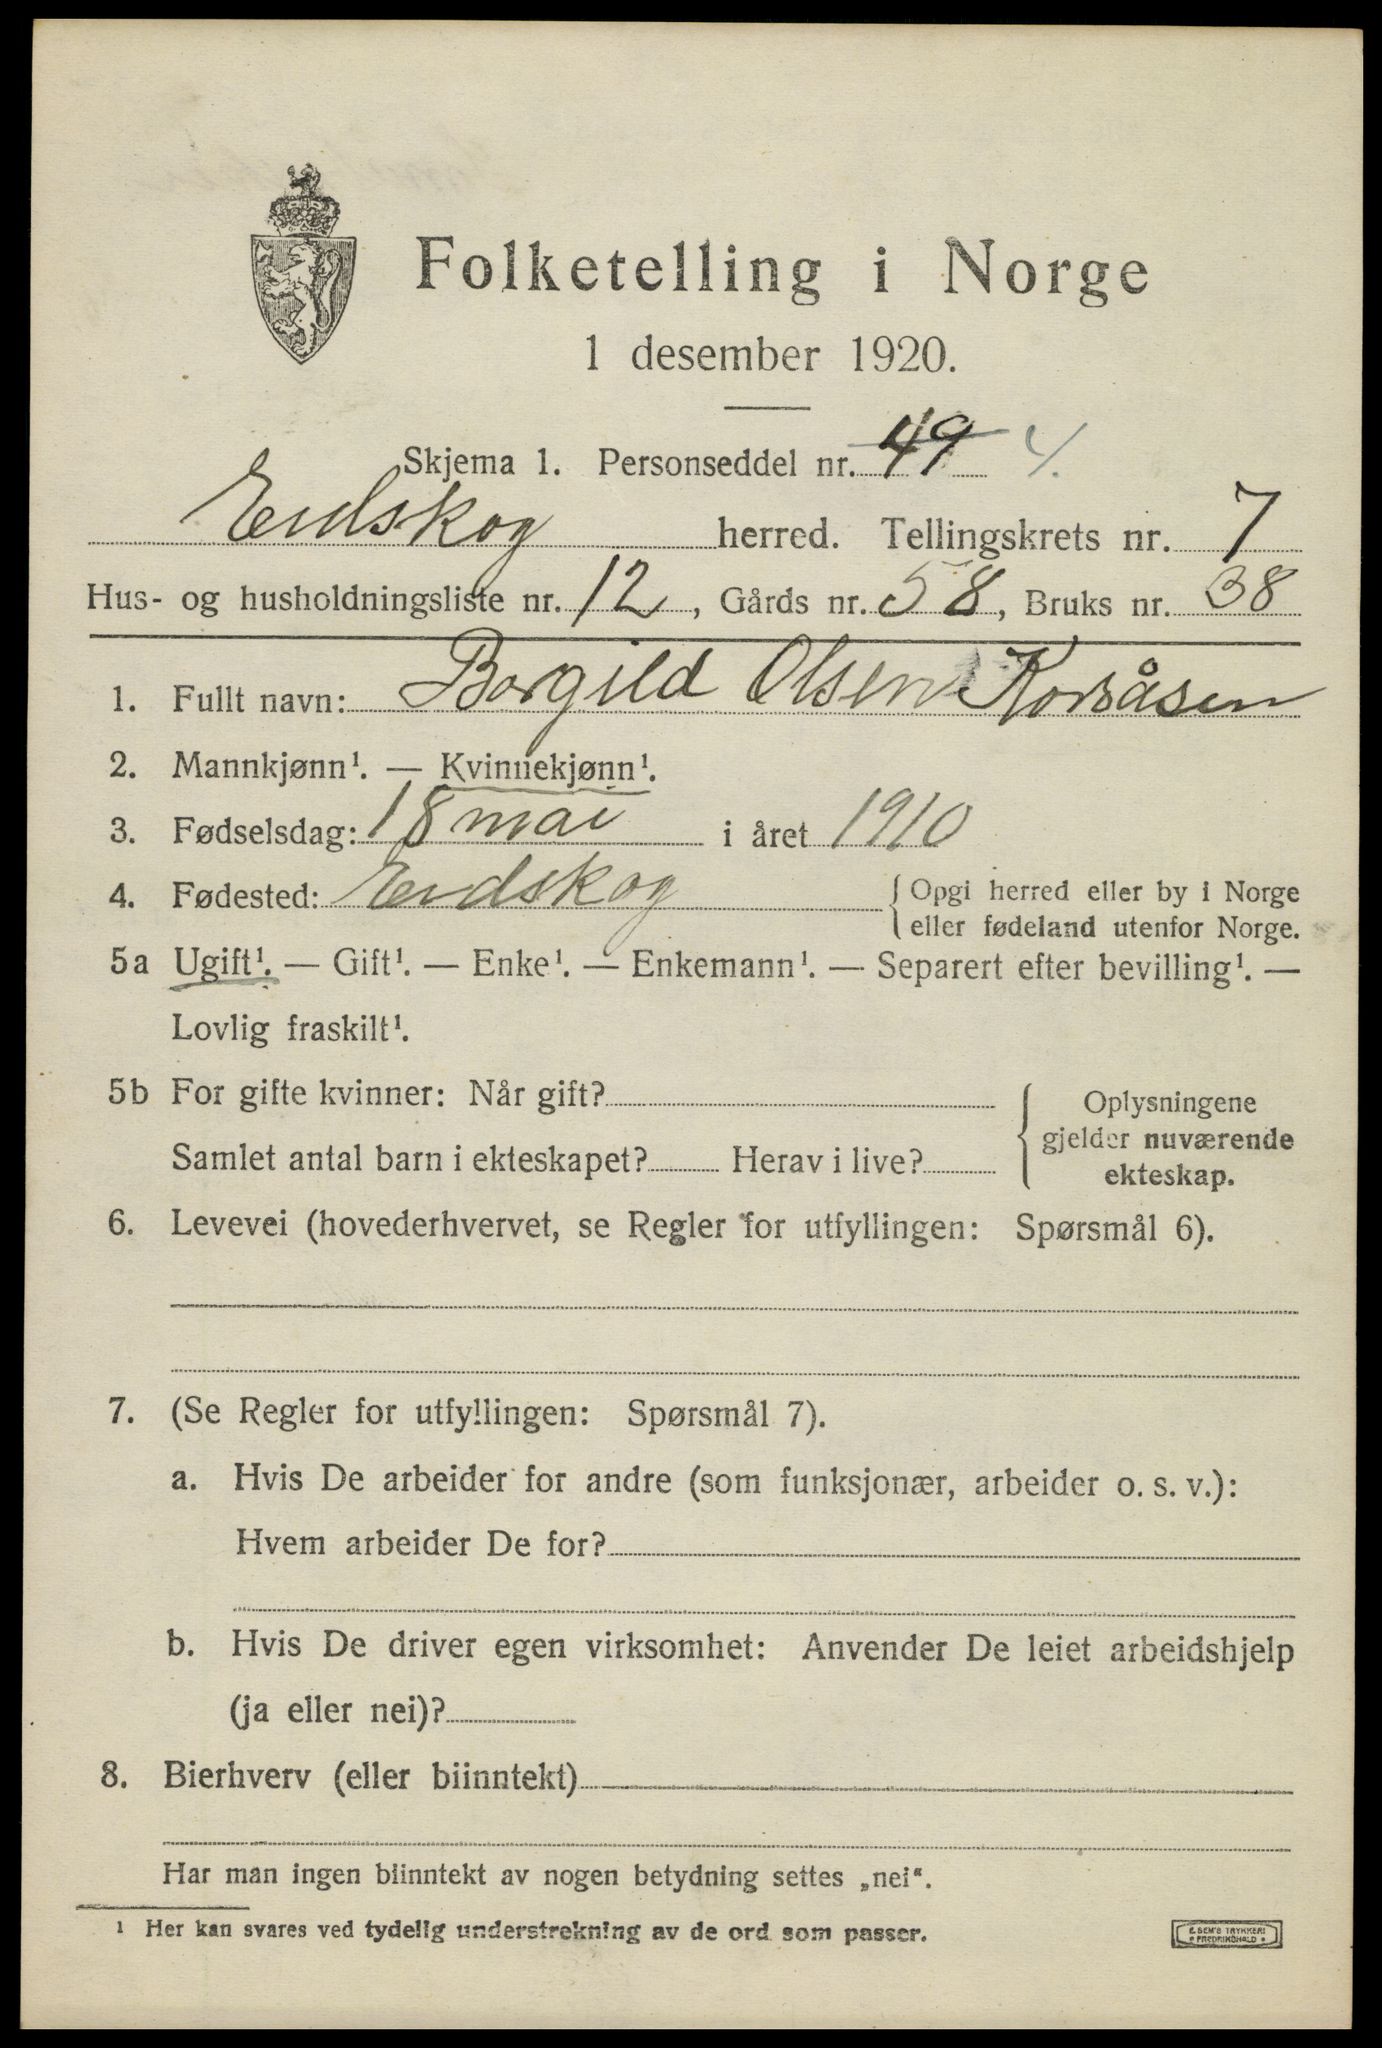 Folketelling i Norge
1 desember 1920.
Skjema 1. Personseddel nr. 49 4.
Eidskog herred. Tellingskrets nr. 7
Hus- og husholdningsliste nr. 12, Gårds nr. 58, Bruks nr. 38
1. Fullt navn: Borgild Olsen Korsåsen
2. Mannkjønn¹. — Kvinnekjønn¹.
3. Fødselsdag: 18 mai i året 1910
4. Fødested: Eidskog { Opgi herred eller by i Norge
eller fødeland utenfor Norge.
5a Ugift¹. — Gift¹. — Enke¹. — Enkemann¹. — Separert efter bevilling¹. —
Lovlig fraskilt¹.
5b For gifte kvinner: Når gift?
Samlet antal barn i ekteskapet? Herav i live?
{ Oplysningene
gjelder nuværende
ekteskap.
6. Levevei (hovederhvervet, se Regler for utfyllingen: Spørsmål 6).
7. (Se Regler for utfyllingen: Spørsmål 7).
a. Hvis De arbeider for andre (som funksjonær, arbeider o. s. v.):
Hvem arbeider De for?
b. Hvis De driver egen virksomhet: Anvender De leiet arbeidshjelp
(ja eller nei)?
8. Bierhverv (eller biinntekt)
Har man ingen biinntekt av nogen betydning settes „nei“.
¹ Her kan svares ved tydelig understrekning av de ord som passer.
E. SEM'S TRYKKERI
• FREDRIKSHALD •